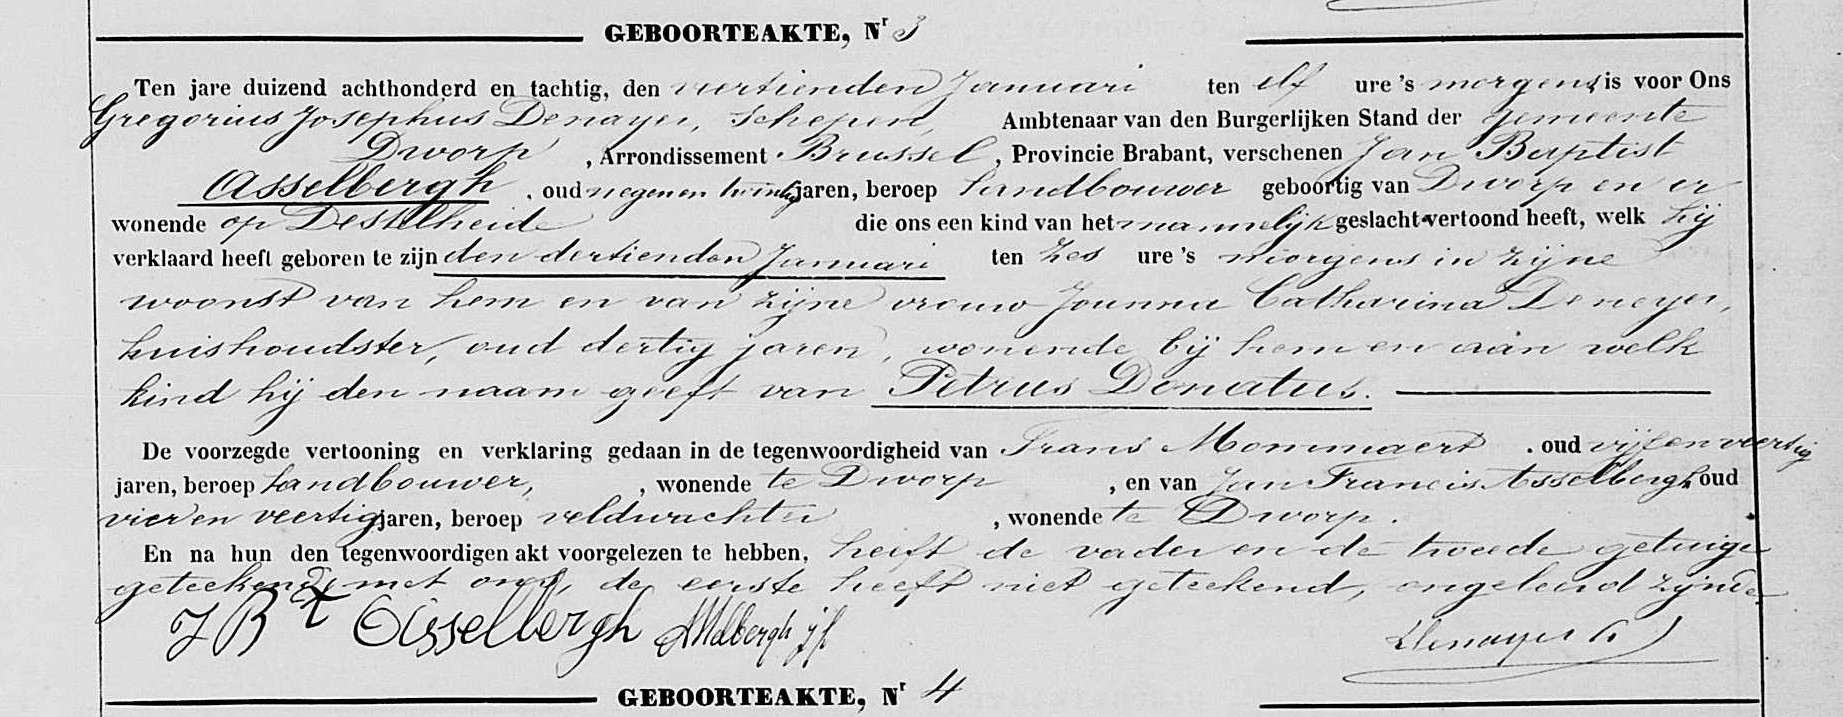 GEBOORTEAKTE, Nr 3
Ten jare duizend achthonderd en tachtig, den veertienden Januari ten elf ure 's morgens, is voor Ons
Gregorius Josephus Denayer, Schepen, Ambtenaar van den Burgerlijken Stand der gemeente
Dworp, Arrondissement Brussel, Provincie Brabant, verschenen Jan Baptist
Asselbergh, oud negen en twintig jaren, beroep landbouwer geboortig van Dworp en er
wonende op Destelheide die ons een kind van het mannelijk geslacht vertoond heeft, welk hij
verklaard heeft geboren te zijn den dertienden Januari ten zes ure 's morgens in zijne
woonst van hem en van zijne vrouw Joanna Catharina Deneyer,
huishoudster, oud dertig jaren, wonende bij hem en aan welk
kind hij den naam geeft van Petrus Donatus.
De voorzegde vertooning en verklaring gedaan in de tegenwoordigheid van Frans Mommaert, oud vijf en veertig
jaren, beroep landbouwer, , wonende te Dworp, en van Jan Francis Asselbergh oud
vier en veertig jaren, beroep veldwachter, wonende te Dworp.
En na hun den tegenwoordigen akt voorgelezen te hebben, heeft de vader en de tweede getuige
geteekend met ons, de eerste heeft niet geteekend, ongeleerd zijnde
J Bt Asselbergh Asselbergh jf Denayer G J
GEBOORTEAKTE, Nr 4